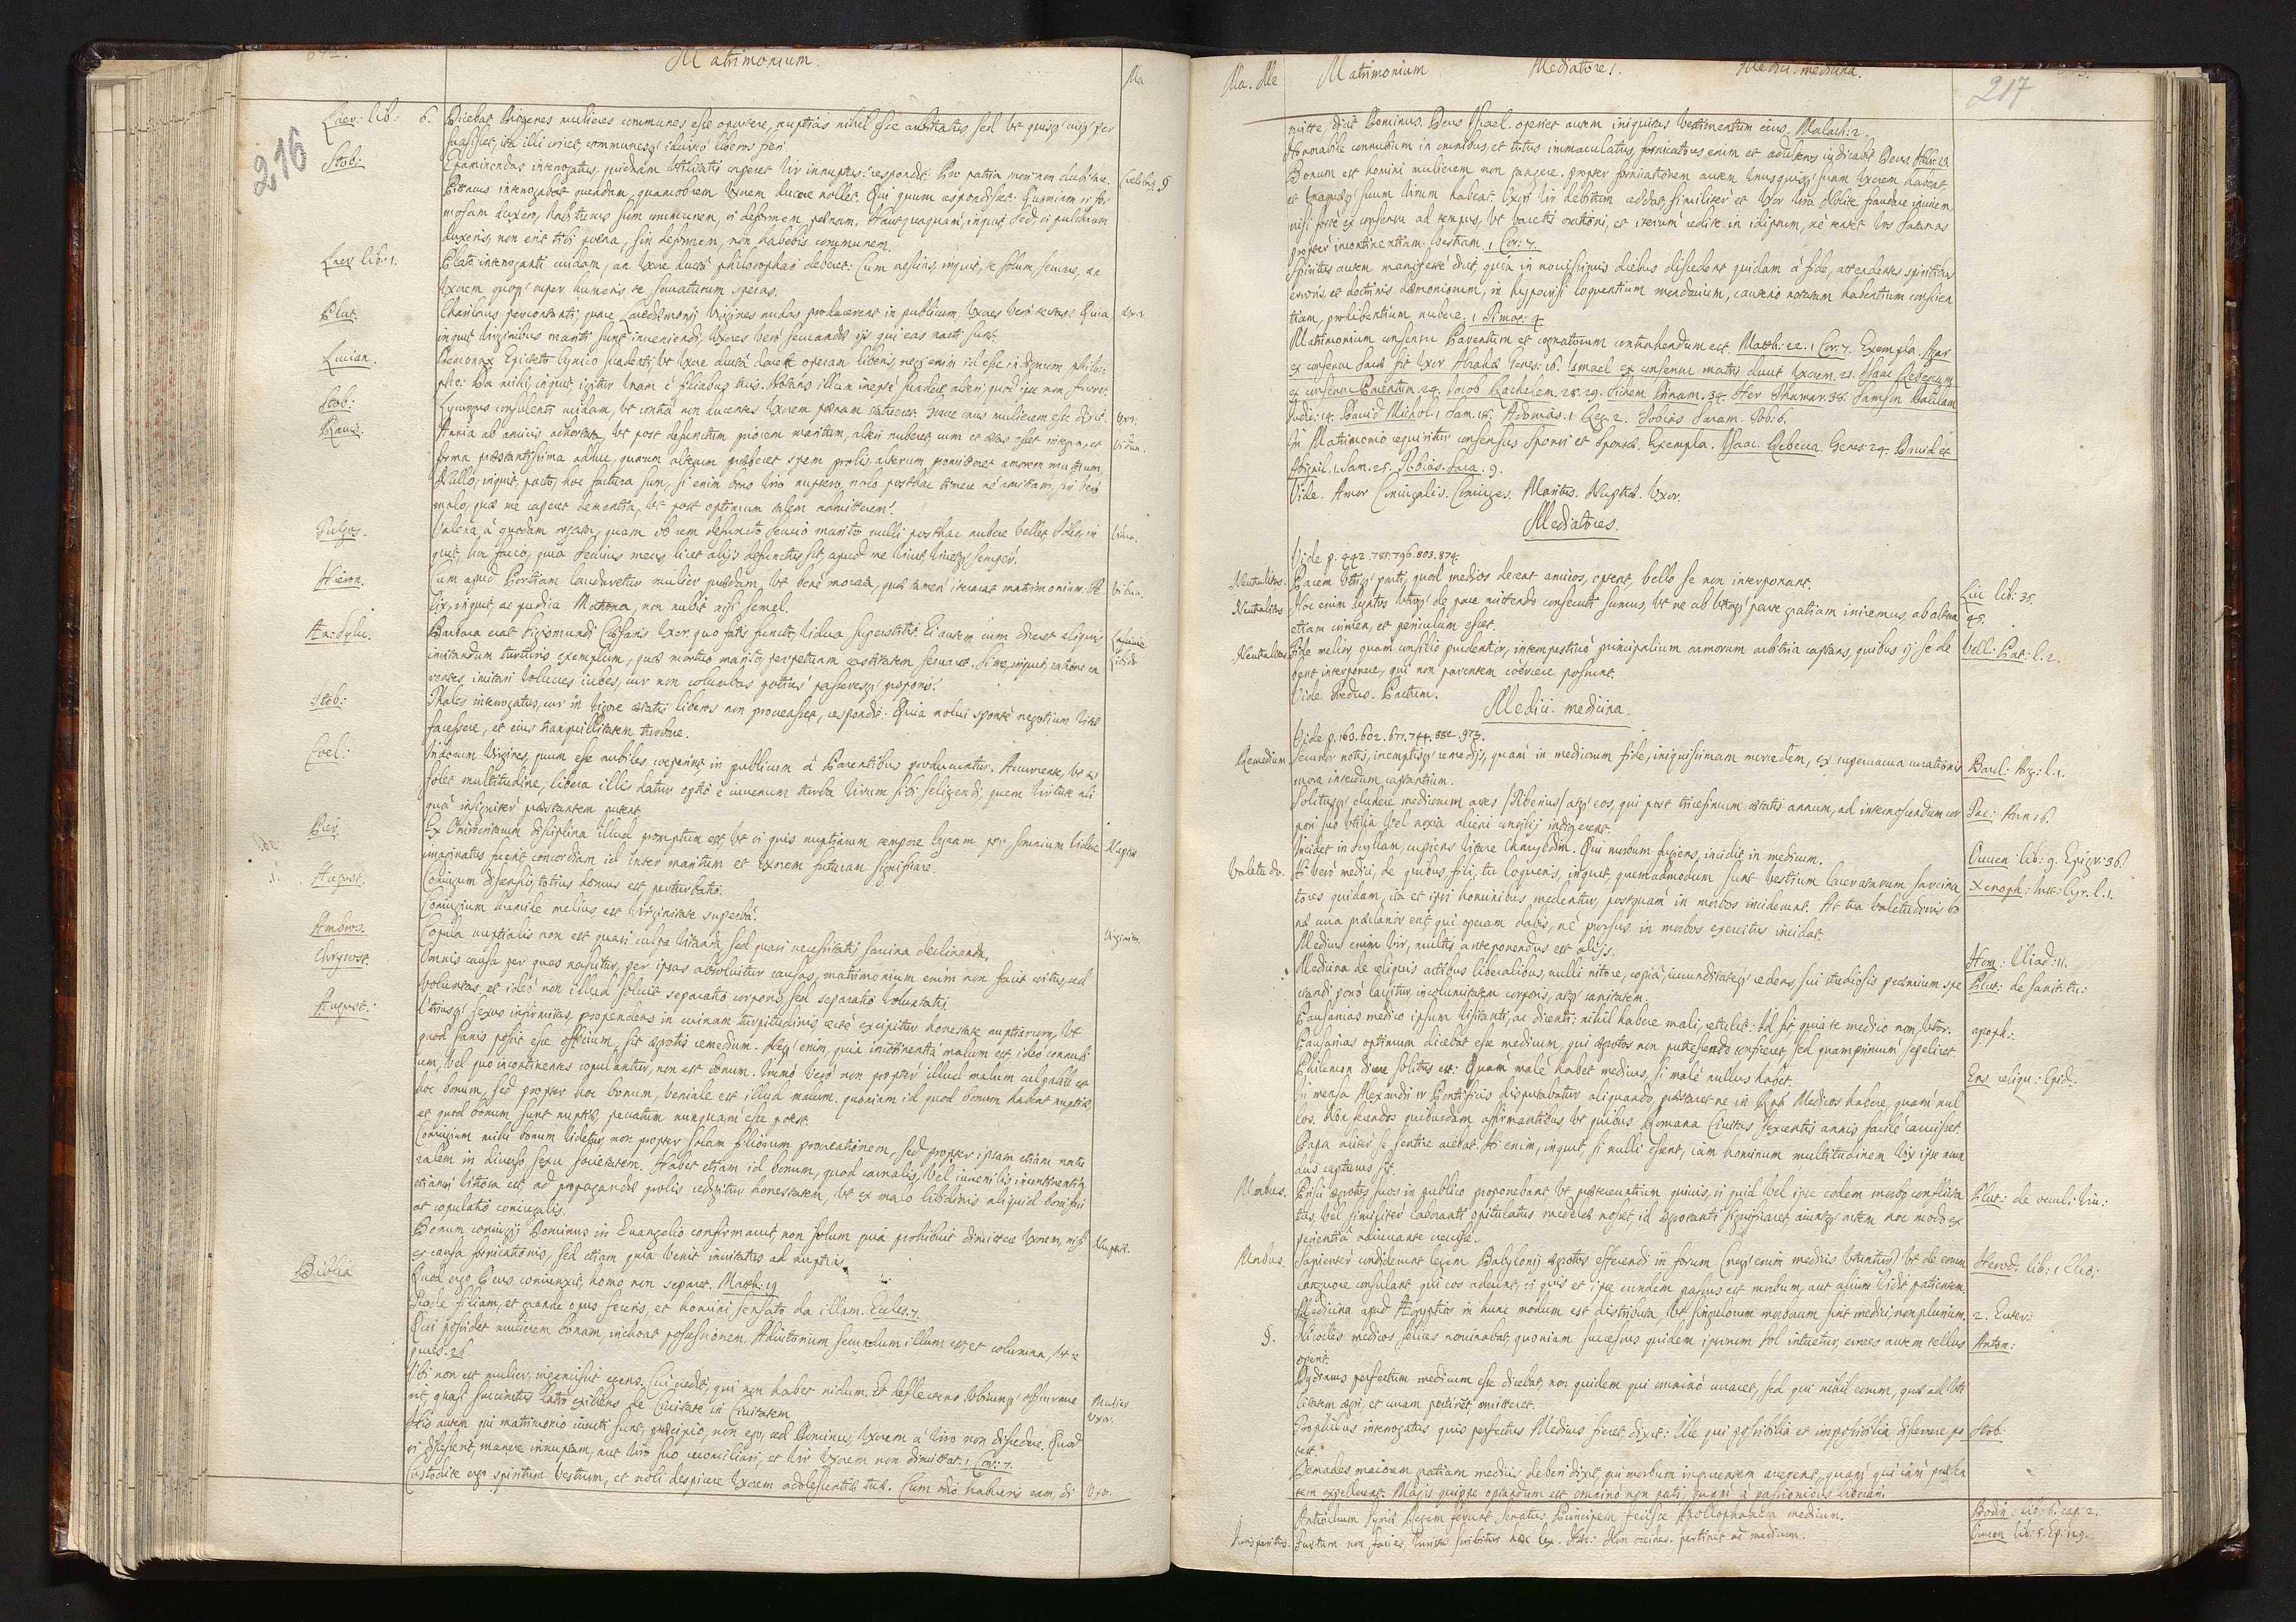 Matrimonium.
Ma
216
Laer: lib: 6. Dicebat Diogenes mulieres communes esse oportere, nuptias nihil esse arbitratus sed vt quisq; cuiq; per
suasisset, ita illi coiret, communesq; idcircò liberos fieri.
Stob: Epaminondas interrogatus, quidnam vtilitatis caperet vir innuptus: respondit: Pro patria mori non dubitare. Coelibat9
Pittacus interrogabat quendam, quamobrem vxorem ducere nollet. Qui quum respondisset: Quoniam si for
mosam duxero, habiturus sum communem, si deformem, poenam. Haut quaquam, inquit, sed si pulchram
duxeris, non erit tibi poena, sin deformem, non habebis communem.
Laer. lib: 1. Plato interroganti cuidam, an vxore ducta philosophari deberet: Cum nescias, inquit, te solum seruare, an
vxorem quoq; super humeris te seruaturum speras.
Plut. Charilaus percontanti, quare Lacedaemonij virgines nudas producerent in publicum, vxores verò tectas: Quia, Vxor.
inquit virginibus mariti sunt inueniendi, vxores verò seruandae ijs qui eas nacti sunt.
Lucian. Demonax Epicteto Cynico suadenti, vt vxore ducta daret operam liberis, neq; enim id esse indignum philoso
pho: Da mihi, inquit, igitur vnam è filiabus tuis. Notans illum ineptè suadere alteri, quod ipse non faceret.
Stob: Lycurgus consulenti cuidam, vt contra non ducentes vxorem poenam statueret: Graue onus mulierem esse dixit. Vxor.
Annia ab amicis adhortata, vt post defunctum priorem maritum, alteri nuberet, cum et aetas esset integra, et Vidua.
forma praestantissima adhuc, quarum alterum praeberet spem prolis, alterum promitteret amorem mutuum
Nullo, inquit, pacto, hoc factura sum, si enim bono viro nupsero, nolo posthac timere ne amittam, sin verò
malo, quae me caperet dementia, vt post optimum talem admitterem?
Fulgos. Valeria à quodam rogata, quam ob rem defuncto Seruio marito nulli posthac nubere vellet: Ideo, in Vidua.
quit, hoc facio, quia Seruius meus, licet alijs defunctus sit, apud me viuit, viuetq; semper.
Hieron. Cum apud Portiam laudaretur mulier quaedam, vt bene morata, quae tamen iterarat matrimonium: Fe Vidua.
lix, inquit, ac pudica Matrona, non nubit nisi semel.
Ae: Sylu. Barbara erat Sigismundi Caesaris vxor, quo fatis functo, vidua superstitit. Ei autem cum diceret aliquis
imitandum turturis exemplum, quae mortuo marito, perpetuam castitatem seruaret. Si me, inquit, ratione ca Libido
rentes imitari volucres iubes, cur non columbas potius passeresq; proponis?
Stob: Thales interrogatus, cur in vigore aetatis liberis non procreasset, respondit: Quia nolui sponte negotium vitae
facessere, et eius tranquillitatem turbare.
Coel: Indorum virgines, quum esse nubiles coeperint, in publicum à Parentibus producuntur. Accurrente, vt as
solet multitudine, libera illis datur optio è iuuenum turba virum sibi seligendi, quem virtute ali
quâ insigniter praestantem putent.
Pier. Ex Oniriticorum disciplina illud promptum est, vt si quis nuptiarum tempore ligram per somnium videre Nuptiae
imaginatus fuerit concordiam id inter maritum et vxorem futuram significare.
August. Coniugum dissensio, totius domus est perturbatio.
Coniugium humile melius est virginitate superba.
Ambros. Copula nuptialis non est quasi culpa vitanda, sed quasi necessitatis sarcina declinanda. Virginitas
Chrysost. Omnis causa per quas nascitur, per ipsas absoluitur causas, matrimonium enim non facit coitus, sed
voluntas, et ideò non illud soluit separatio corporis, sed separatio voluntatis.
August: Vtriusq; sexus infirmitas, propendens in ruinam turpitudinis, rectè excipitur honestate nuptiarum, vt
quod sanis posset esse officium, sit aegrotis remedium. Neq; enim, quia incontinentia malum est ideò connubi
um, vel quo incontinentes copulantur, non est bonum. Immò verò non propter illud malum culpabile est
hoc bonum, sed propter hoc bonum, veniale est illud malum. quoniam id quod bonum habent nuptiae,
et quod bonum sunt nuptiae, peccatum nunquam esse potest.
Coniugium mihi bonum videtur, non propter solam filiorum procreationem, sed propter ipsam etiam natu
ralem in diuerso sexu societatem. Habet etiam id bonum, quod carnalis, vel iuuenilis incontinentia
etiamsi vitiosa est, ad propagandae prolis redigitur honestatem, vt ex malo libidinis aliquid boni faci
at copulatio coniugalis.
Bonum coniugij Dominus in Euangelio confirmauit, non solum quia prohibuit dimittere vxorem, nisi Nuptiae.
ex causa fornicationis, sed etiam quia venit inuitatus ad nuptias.
Biblia Quod ergo Deus coniunxit, homo non separet. Matth: 19
Trade filiam, et grande opus feceris, et homini sensato da illam. Eccles. 7.
Qui possidet mulierem bonam, inchoat possessionem. Adiutorium secundum illum est, et columna, vt re
quies. 26.
Vbi non est mulier, ingemiscit egens. Cui credit, qui non habet nidum. Et deflectens vbicunq; obscuraue Mulier
rit, quasi succinctus latro exiliens de Ciuitate in Ciuitatem. Vxor.
His autem qui matrimonio iuncti sunt, praecipio, non ego, sed Dominus, vxorem à viro non discedere. Quod
si discesserit, manere innuptam, aut viro suo reconciliari, et vir vxorem non dimittat. 1 Cor: 7.
Custodite ergo spiritum vestrum, et noli despicere vxorem adolescentiae tuae. Cum odio habueris eam, di Vxor.
Ma. Me Matrimonium Mediatores. Medici. medicina. 217
mitte, dicit Dominus Deus Israel. operiet autem iniquitas vestimentum eius. Malach: 2.
Honorabile connubium in omnibus, et torus immaculatus, fornicatores enim et adulteros iudicabit Deus. Hebr: 13.
Bonum est homini mulierem non tangere. propter fornicationem autem vnusquisq; suam vxorem habeat,
et vnaquaeq; suum virum habeat. Vxori vir debitum reddat, similiter et vxor viro. Nolite fraudare inuicem,
nisi forte ex consensu ad tempus, vt vacetis orationi, et iterum redite in idipsum, ne tentet vos Satanas
propter incontinentiam vestram. 1 Cor: 7.
Spiritus autem manifestè dicit, quia in nouissimis diebus discedent quidam à fide, attendentes spiritibus
erroris, et doctrinis daemoniorum, in hypocrisi loquentium mendacium, cauterio notatam habentium conscien
tiam, prohibentium nubere. 1 Timot: 4
Matrimonium consensu Parentum et cognatorum contrahendum est. Matth: 22. 1 Cor: 7. Exempla. Agar
ex consensu Sarae fit vxor Abrahae Genes: 16. Ismael ex consensu matris ducit vxorem. 21. Isaac Rebeccam
ex consensu Parentum. 24. Iacob Rachelem. 28. 29. Sichem Dinam. 34. Her Thamar. 38. Samson Dalilam
Iudic: 14. Dauid Michol. 1 Sam. 18. Adonias. 1 Reg. 2. Tobias Saram. Tob: 6.
In Matrimonio requiritur consensus Sponsi et Sponsae. Exempla. Isaac. Rebecca. Genes: 24. Dauid et
Abigail. 1. Sam. 25. Tobias. Sara. 9.
Vide. Amor Coniugalis. Coniuges. Maritus. Nuptiae. Vxor.
Mediatores.
Vide p. 442. 785. 796. 803. 874.
Neutralitas. Pacem vtriq; parti, quod medios decent amicos, optent, bello se non interponant. Liu lib: 35.
Neutralitas Hoc enim legatos vtroq; de pace mittendo consecuti sumus, vt ne ab vtraq; parte gratiam iniremus, ab altera 45.
etiam crimen, et periculum esset.
Neutralitas Fide melior, quam consilio prudentior, intempestiuè principalium armorum arbitria captans, quibus ij se de Vell: Pat: l. 2.
bent interponere, qui non parentem coërcere possunt.
Vide Foedus. Pactum.
Medici. medicina.
Vide p. 163. 602. 677. 744. 882. 973.
Remedium Securior notis, inemptisq; remedijs, quam in medicorum fide, iniquissimam mercedem, ex repentina curationis Barcl: Arg: l. 1.
mora interdum captantium.
Solitusq; eludere medicorum artes (Tiberius) atq; eos, qui post tricesimum aetatis annum, ad internoscendum cor Tac: Ann: 6.
pori suo vtilia vel noxia alieni consilij indigerent.
Incidit in Scyllam, cupiens vitare Charybdim. Qui morbum fugiens, incidit in medicum. Ouuen lib: 9. Epigr: 36.
Valetudo. Hi verò medici, de quibus, fili, tu loqueris, inquit, quemadmodum sunt vestium laceratarum sarcina Xenoph: Inst: Cyr. l. 1.
tores quidam, ita et ipsi hominibus medentur, postquam in morbos inciderunt. At tua valetudinis bo
nae cura praeclarior erit, qui operam dabis, ne prorsus in morbos exercitus incidat.
Medicus enim vir, multis anteponendus est alijs. Hom: Iliad: 11.
Medicina de reliquis artibus liberalibus, nulli nitore, copia, iucunditateq; cedens, sui studiosis praemium spe Plut: de sanit. tu:
ctandi porrò largitur, incolumitatem corporis, atq; sanitatem.
Pausanias medico ipsum visitanti, ac dicenti: nihil habere mali, retulit: Id fit, quia te medico non vtor. apoph:
Pausanias optimum dicebat esse medicum, qui aegrotos non putrescendo conficeret, sed quamprimum sepeliret.
Philemon dicere solitus est: Quam malè habet medicus, si malè nullus habet. Ens reliqu: Epid:
In mensa Alexandri IV Pontificis disputabatur aliquando, praestaret ne in Rep. Medicos habere, quam nul
los. Non ferendos quibusdam affirmantibus vt quibus Romana Ciuitas sexcentis annis facilè caruisset.
Papa aliter se sentire aiebat. Hi enim, inquit, si nulli essent, iam hominum multitudinem vix ipse mun
dus capturus sit.
Morbus. Prisci aegrotos suos in publico proponebant, vt praetereuntium quiuis, si quid vel ipse eodem morbo conflicta Plut: de occul: viu:
tus, vel similiter laboranti opitulatus medelae nosset, id aegrotanti significaret, aiuntq; artem hoc modo ex
perientia adiuuante creuisse.
Morbus. Sapienter condiderunt legem Babylonij aegrotos efferendi in forum (neq; enim medicis vtuntur) vt de eorum Herod: lib: 1 Clio:
languore consulant qui eos adeunt, si quis et ipse eundem passus est morbum, aut alium vidit patientem.
Medicina apud Aegyptios in hunc modum est distributa, vt singulorum morborum sint medici, non plurium. 2. Euter:
§. Nicocles medicos felices nominabat, quoniam successus quidem ipsorum Sol intuetur, errores autem tellus Anton:
operit.
Dydimus perfectum medicum esse dicebat, non quidem qui omnino curaret, sed qui nihil eorum, quae ad vti
litatem aegri, et curam pertinet, omitteret.
Trophilus interrogatus quis perfectus Medicus fieret, dixit: Ille qui possibilia et impossibilia discernere po Stob:
test.
Demades maiorem gratiam medicis deberi dixit, qui morbum ingruentem auerterent, quam qui iam praesen
tem expellerent. Magis quippe optandum est omnino non pati, quam à passionibus liberari.
Antiochum Syriae Regem ferunt Senatus Principem fecisse Apollophanem medicum. Bodin: lib: 6. cap: 2.
Furtum non facies, Iuristae scribitur haec lex. Haec: Non occides. pertinet ad medicum. Ouuen lib: 5. Ep: 129.